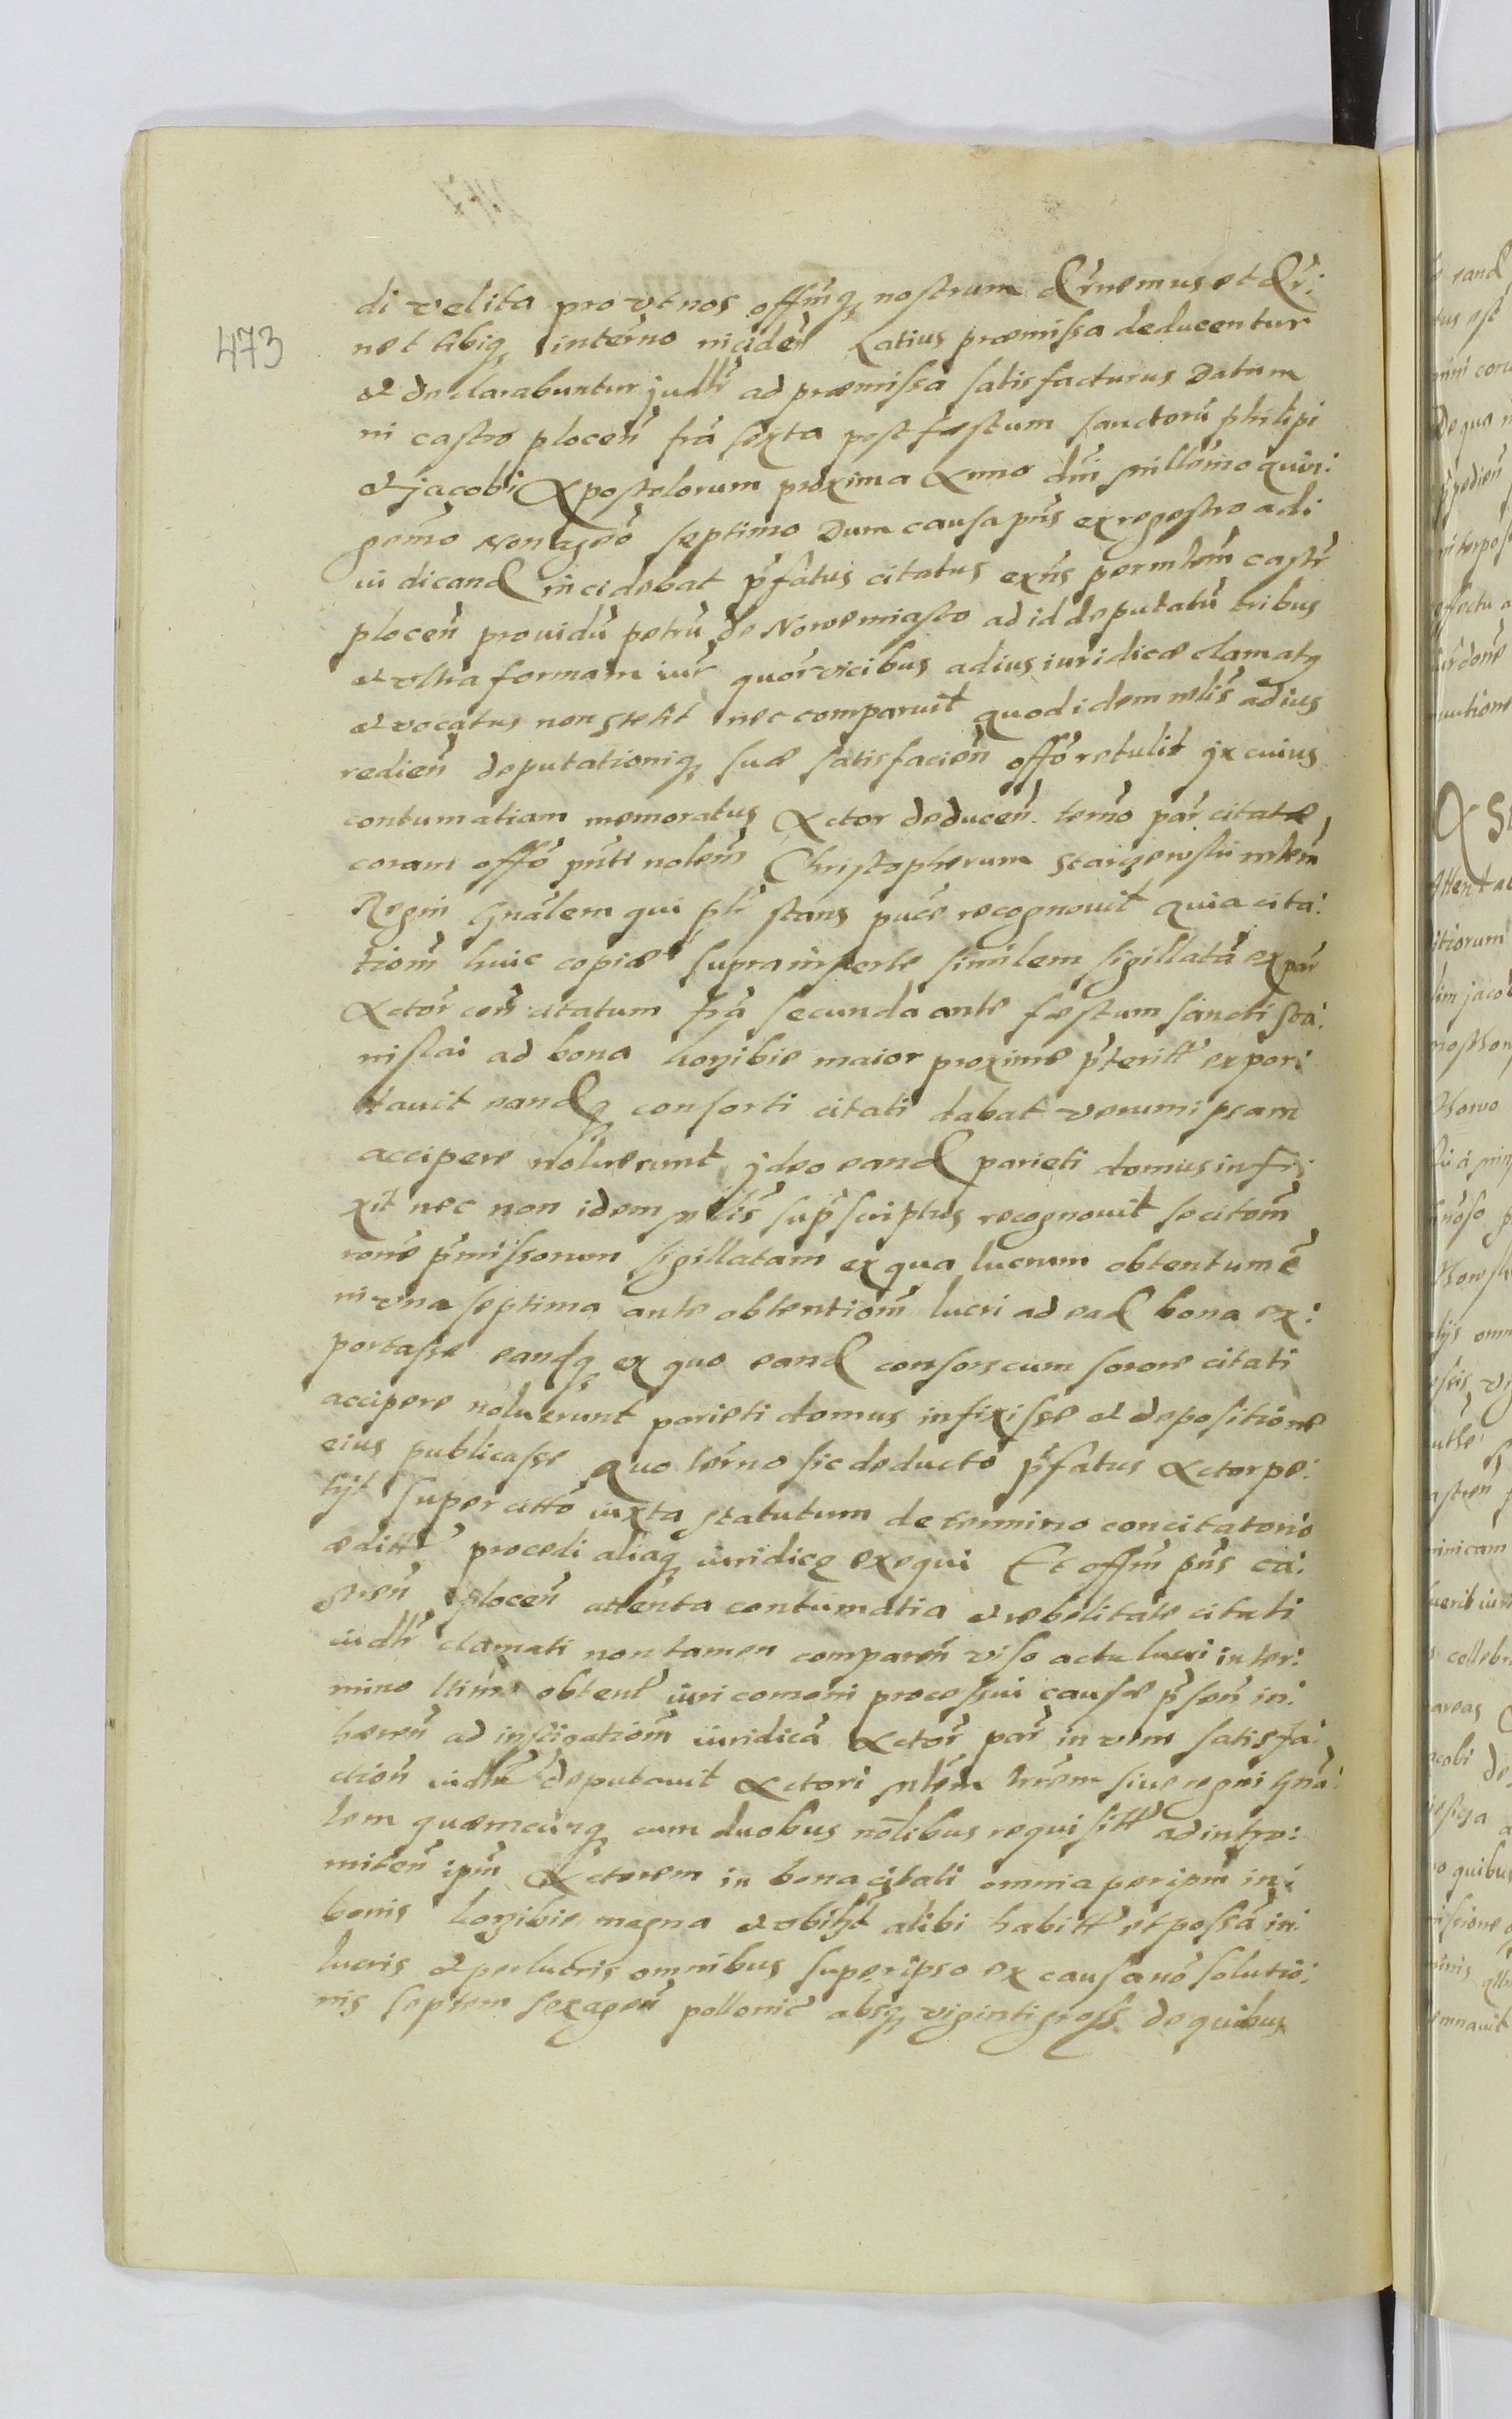 473
di velita pro vt nos offmq nostrum decernemus et decer:
net tibiq interno inciden Latius praemissa deducentur
et declarabuntur judtr ad praemissa satisfacturus Datum
in castro plocen fra sexta post festum sanctoru philipi
et jacobi Apostolorum proxima Anno dni millesimo quin:
gemo Nonageo septimo Dum causa pns ex regestro adi
iudicand incidebat pfatus citatus exns per mlem castr
plocen prouidu petru de Nowemiasto ad id deputatu tribus
et vltra formam iur quor vicibus ad ius iuridicae clamatq
et vocatus non stetit nec comparuit quod idem mlis ad ius
redien deputationiq suae satisfacien offo retulit jx cuius
contumatiam memoratus Actor deducen terno par citatae
coram offo pnti nolem Christopherum mlem
Regni Gnalem qui ptr stans puce recognouit quia cita:
tiom huic copiae suprainserte similem sigillata ex par
Actor con citatum fra secunda ante festum sancti sta:
nislai ad bona maior proxime pteritt expor:
tauit eandq consorti citati dabat verum ipsam
accipere noluerunt jdeo eand parieti domus infi:
xit nec non idem mlis supscriptus recognouit se citom
rone pmissorum sigillatam ex qua lucrum obtentum e
in vna septima ante obtentiom lucri ad ead bona ex:
portasse eandq ex quo eand consors cum sorore citati
accipere noluerunt parieti domus infixisse et depositione
eius publicasse Quo terno sic deducto pfatus Actor pe:
tijt super citto iuxta statutum de termino concitatorio
aeditt procedi aliaq iuridice exequi Et offm pns ca:
stren plocen attenta contumatia et rebelitate citati
iudtr clamati non tamen comparen viso actu lucri in ter:
mino obtent iuri comoni processui causae psen in:
haeren ad instigatiom iuridica Actor par in vim satisfa:
ction iudtr deputauit Actori mlem trrem siue regni Gna:
lem quaemcunq cum duobus nolibus requisitt ad intro:
miten ipm Actorem in bona citati omnia per ipm in:
bonis magna et vbilzt alibi habitt et possa in:
lucris et perlucris omnibus super ipso ex causa no solutio:
nis septem sexagen pollonic absq viginti gross de quibus